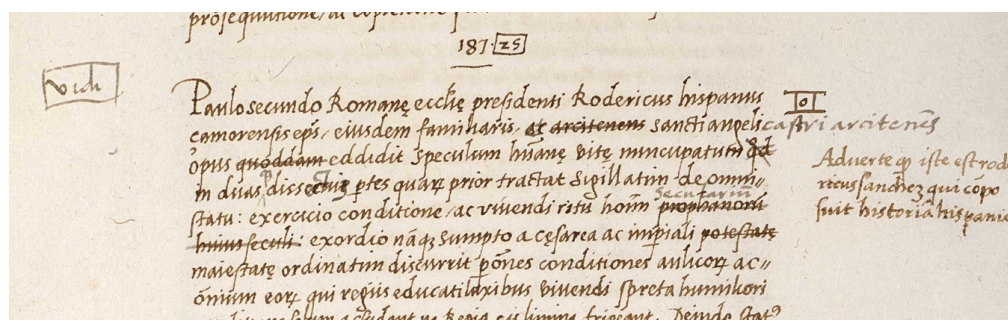 187. 25
vidi
Paulo secundo Romanę ecclię presidenti Rodericus hispanus
camorensis eps̄. eiusdem familiaris. ac arcitenens sancti angeli castri arcitenēs
opus quoddam eddidit speculum hūanę vitę nuncupatum qd
in duas ptes quarꝝ prior tractat sigillatim de omni
statu: exercicio conditione / ac vivendi ritu hoīm prophanorū secularium
huius seculi: exordio nāqꝫ sumpto a cęsarea ac impiali potestate
maiestatę ordinatim discurrit p ōnes conditiones aulicorꝝ ac
ōnium eorꝝ qui regiis educati laxibus vivendi spreta humiliori
Adverte qͥ iste est rod
ricus sanchez qui cōpo
suit historiā hispanię